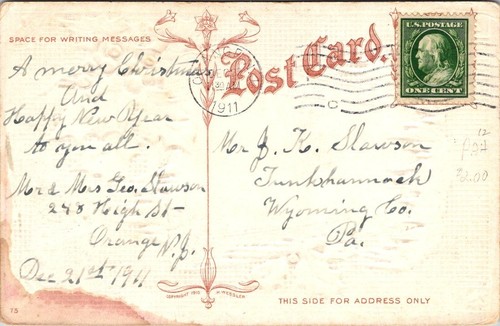 SPACE FOR WRITING MESSAGES
Post Card.
U.S. POSTAGE
ONE CENT
1911
A merry Christmas
And
Happy New Year
to you all.
Mr & Mrs Geo. Slawson
278 High St-
Orange N.J.
Dec 21st 1911
Mr J. K. Slawson
Tunkhannock
Wyoming Co.
Pa.
12
COPYRIGHT 1910 J. HERSLEN
THIS SIDE FOR ADDRESS ONLY